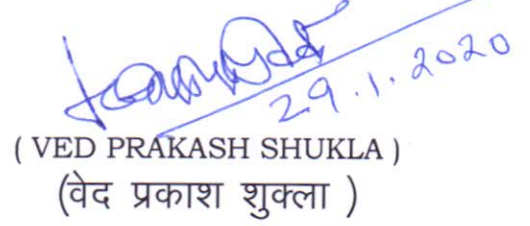 29.1.2020
( VED PRAKASH SHUKLA )
(वेद प्रकाश शुक्ला )